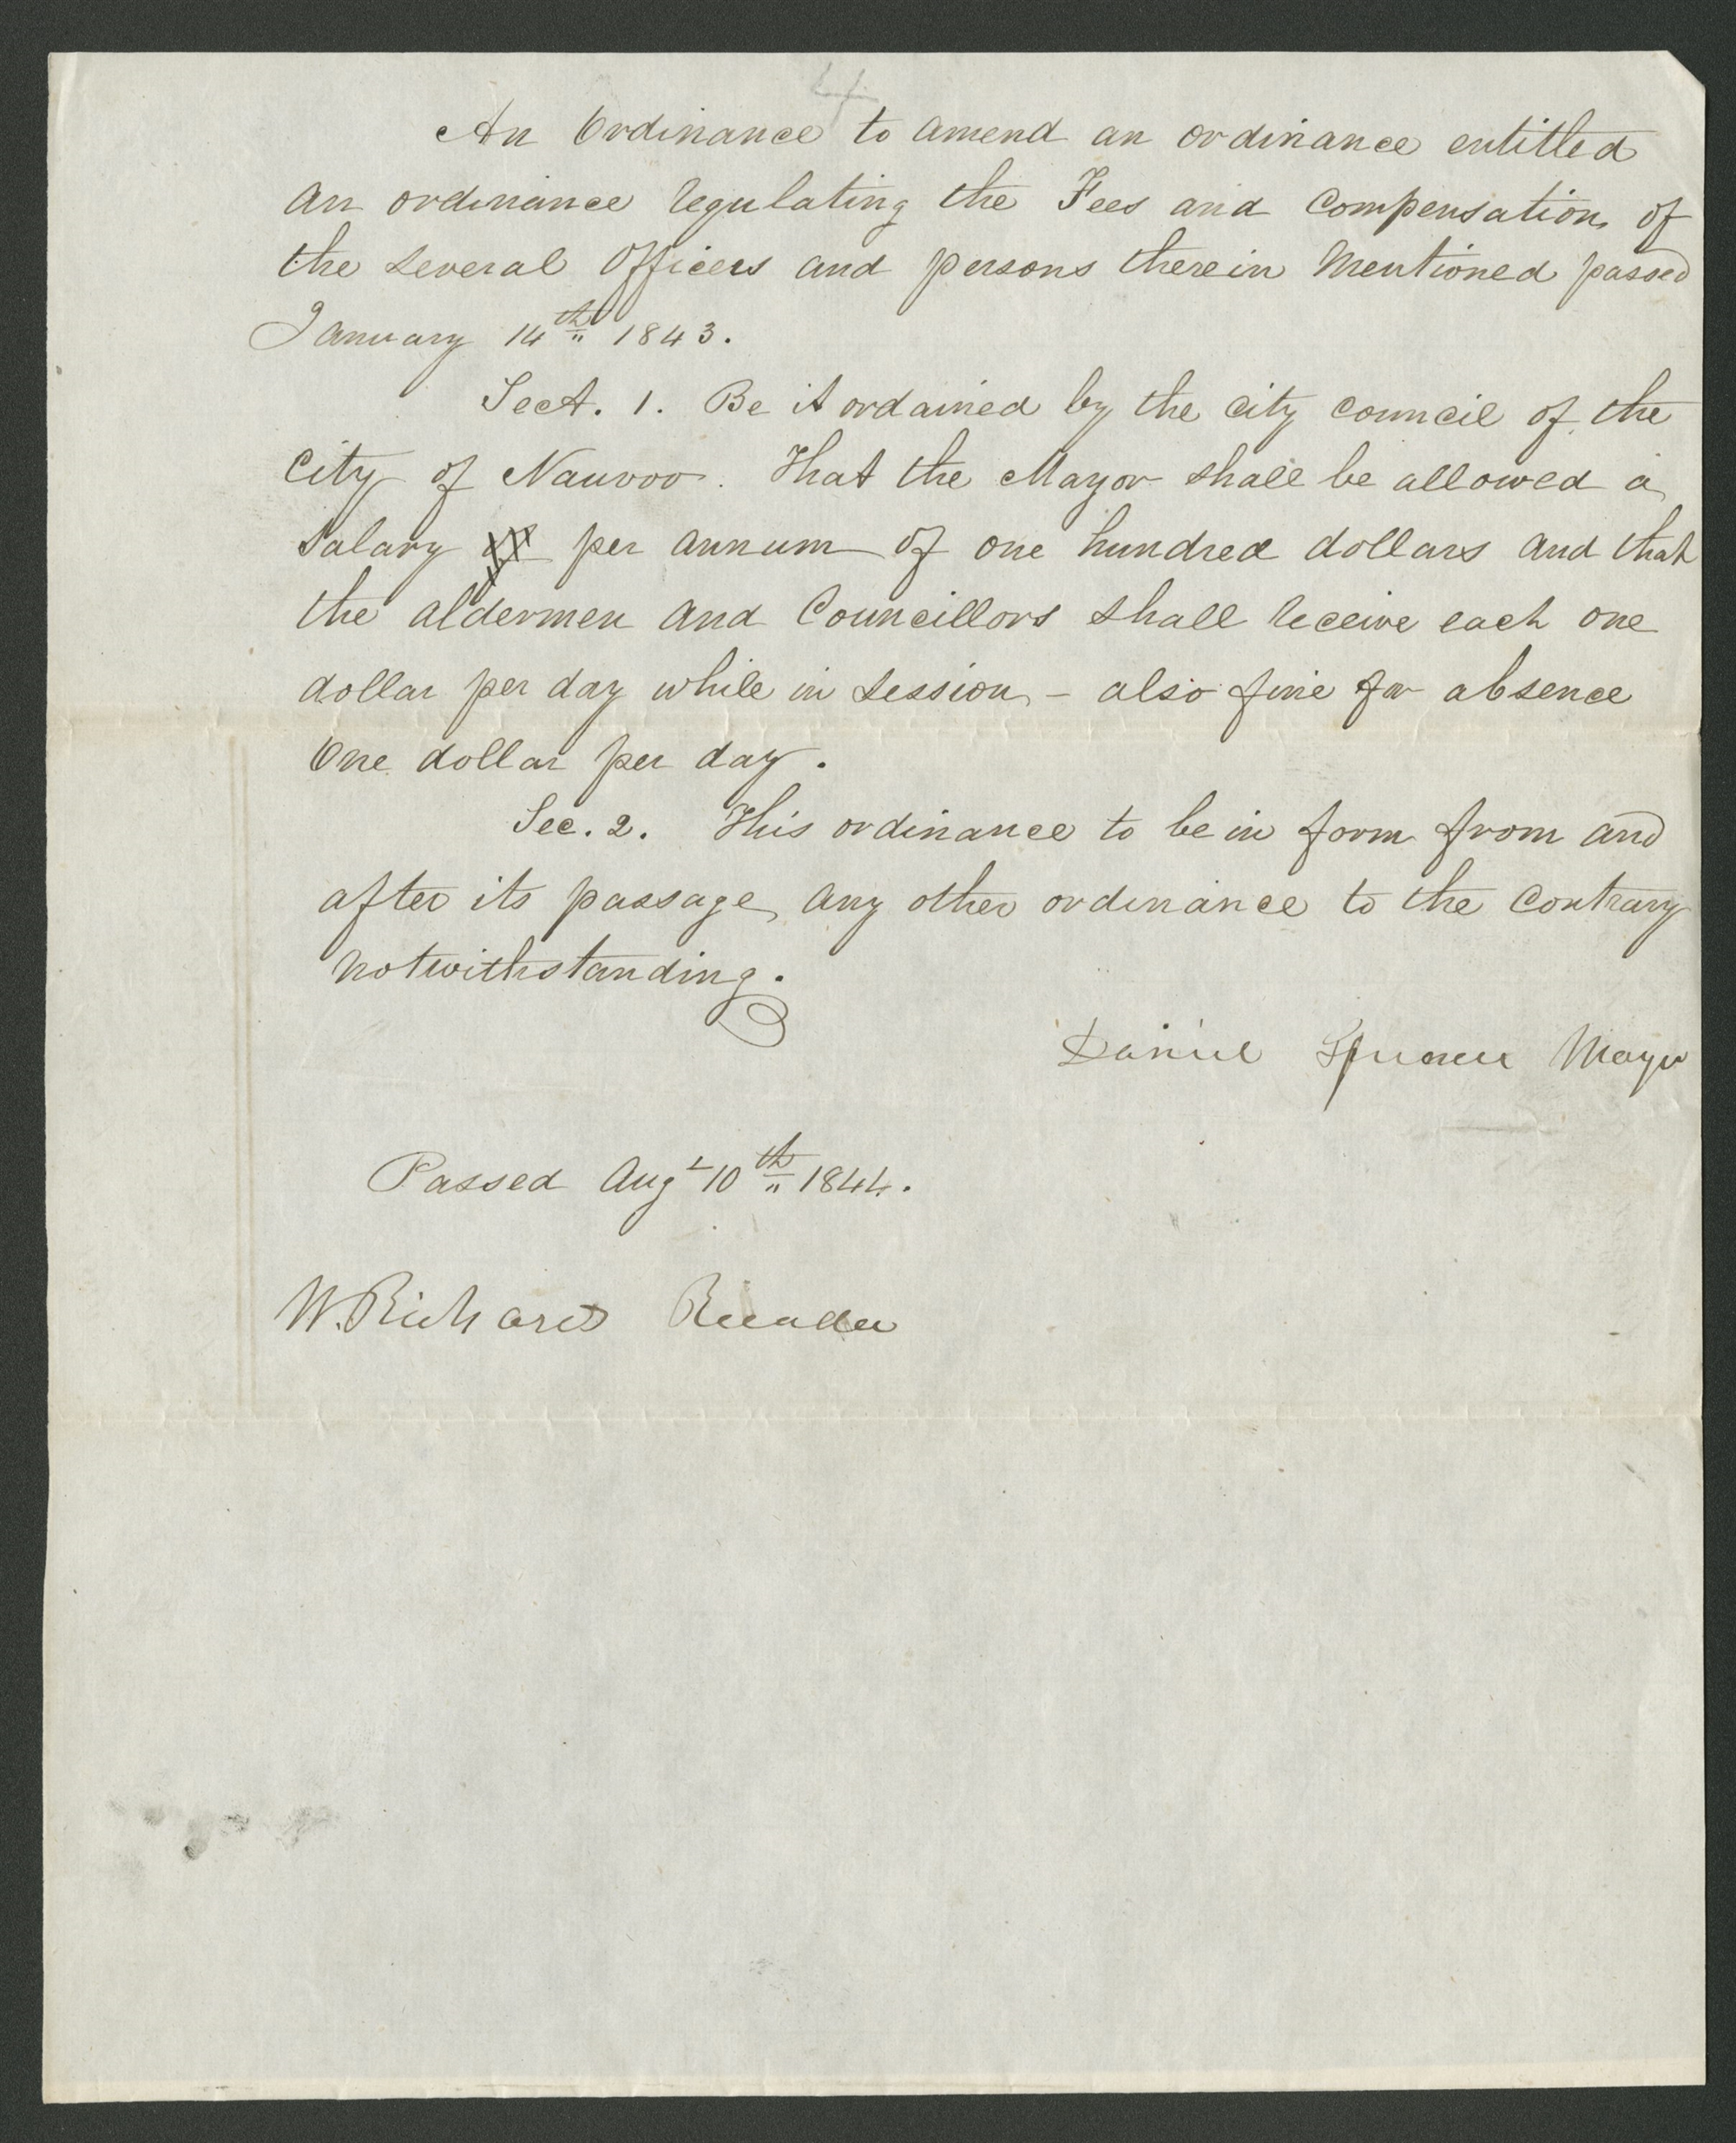 An Ordinance to amend an ordinance entitled
an ordinance regulating the Fees and Compensation of
the several Officers and persons therein mentioned passed
January 14th 1843.
Sect. 1. Be it ordained by the city council of the
City of Nauvoo. That the Mayor shall be allowed a
salary per annum of one hundred dollars and that
the aldermen and Councillors shall receive each one
dollar per day while in session, - also fine for absence
One dollar per day.
Sec. 2. This ordinance to be in form from and
after its passage, any other ordinance to the contrary
notwithstanding.
Daniel Spencer Mayor
Passed Augt 10th 1844.
W. Richards Recorder